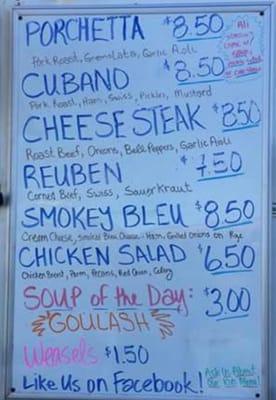 PORCHETTA $8.50
Pork Roast, Greens, Garlic Aioli
CUBANO $8.50
Pork Roast, Ham, Swiss, Pickles, Mustard
CHEESE STEAK $8.50
Roast Beef, Onions, Bell Peppers, Garlic Aioli
REUBEN $7.50
Corned Beef, Swiss, Sauerkraut
SMOKEY BLEU $8.50
Cream Cheese, Smoked Bleu Cheese, Ham, Grilled Onions on Rye
CHICKEN SALAD $6.50
Chicken Breast, Parm, Pecans, Red Onion, Celery
SOUP of the Day: $3.00
GOULASH
Weasels $1.50
Like Us on Facebook!
Ask Us About
Our Kid Menu!